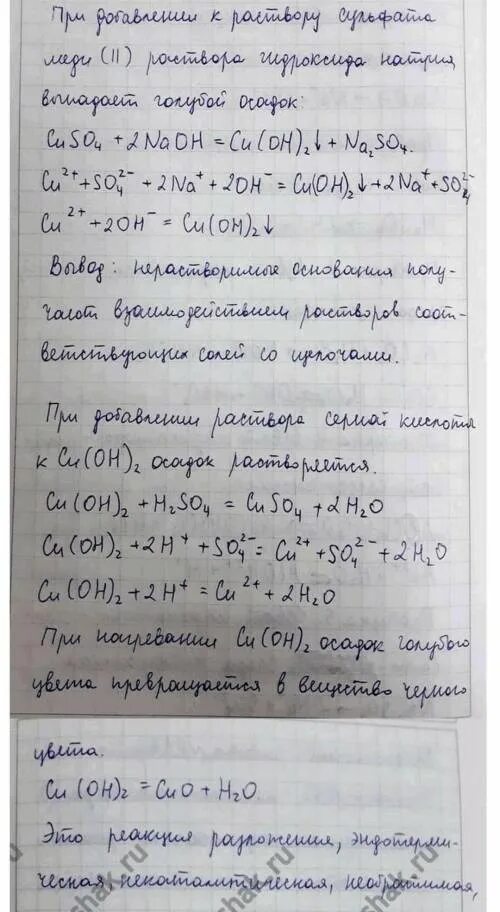 При добавлении к раствору сульфата
меди (II) раствора гидроксида натрия
выпадает голубой осадок:
CuSO₄ + 2NaOH = Cu(OH)₂↓ + Na₂SO₄.
Cu²⁺ + SO₄²⁻ + 2Na⁺ + 2OH⁻ = Cu(OH)₂↓ + 2Na⁺ + SO₄²⁻
Cu²⁺ + 2OH⁻ = Cu(OH)₂↓
Вывод: нерастворимые основания полу-
чают взаимодействием растворов соот-
ветствующих солей со щелочами.
При добавлении раствора серной кислоты
к Cu(OH)₂ осадок растворяется.
Cu(OH)₂ + H₂SO₄ = CuSO₄ + 2H₂O
Cu(OH)₂ + 2H⁺ + SO₄²⁻ = Cu²⁺ + SO₄²⁻ + 2H₂O
Cu(OH)₂ + 2H⁺ = Cu²⁺ + 2H₂O
При нагревании Cu(OH)₂ осадок голубого
цвета превращается в вещество черного
цвета.
Cu(OH)₂ = CuO + H₂O.
Это реакция разложения, эндотерми-
ческая, некаталитическая, необратимая,